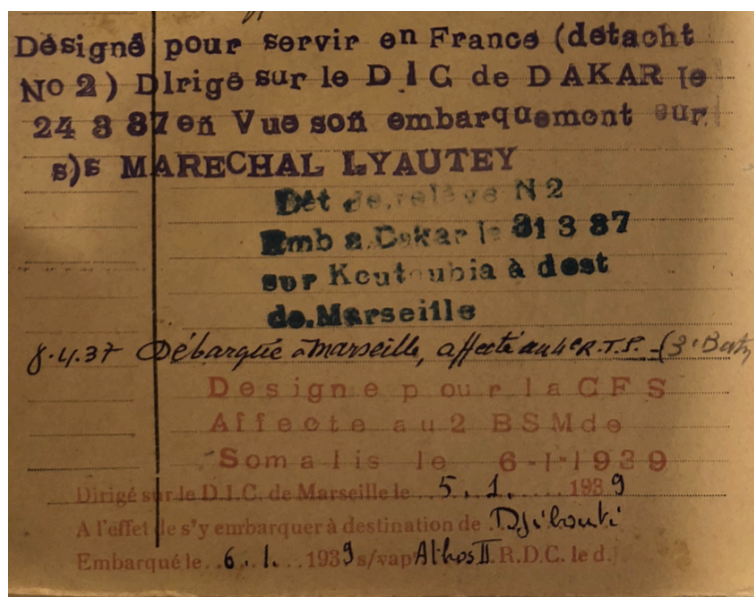 Désigné pour servir en France (détacht
No 2) Dirigé sur le D I C de DAKAR le
24 3 37 en Vue son embarquement sur
s)s MARECHAL LYAUTEY
Dét de relève N 2
Emb a Dakar le 31 3 37
sur Koutoubia à dest
de Marseille
8.4.37 Débarqué à Marseille, affecté au 4e R.T.S. - (3e Batn
Designe pour la CFS
Affecte au 2 BSM de
Somalis le 6-1-1939
Dirigé sur le D.I.C. de Marseille le ..5..1.....1939
A l'effet de s'y embarquer à destination de Djibouti
Embarqué le..6..1...1939 s/vap Athos II.R.D.C. le d.